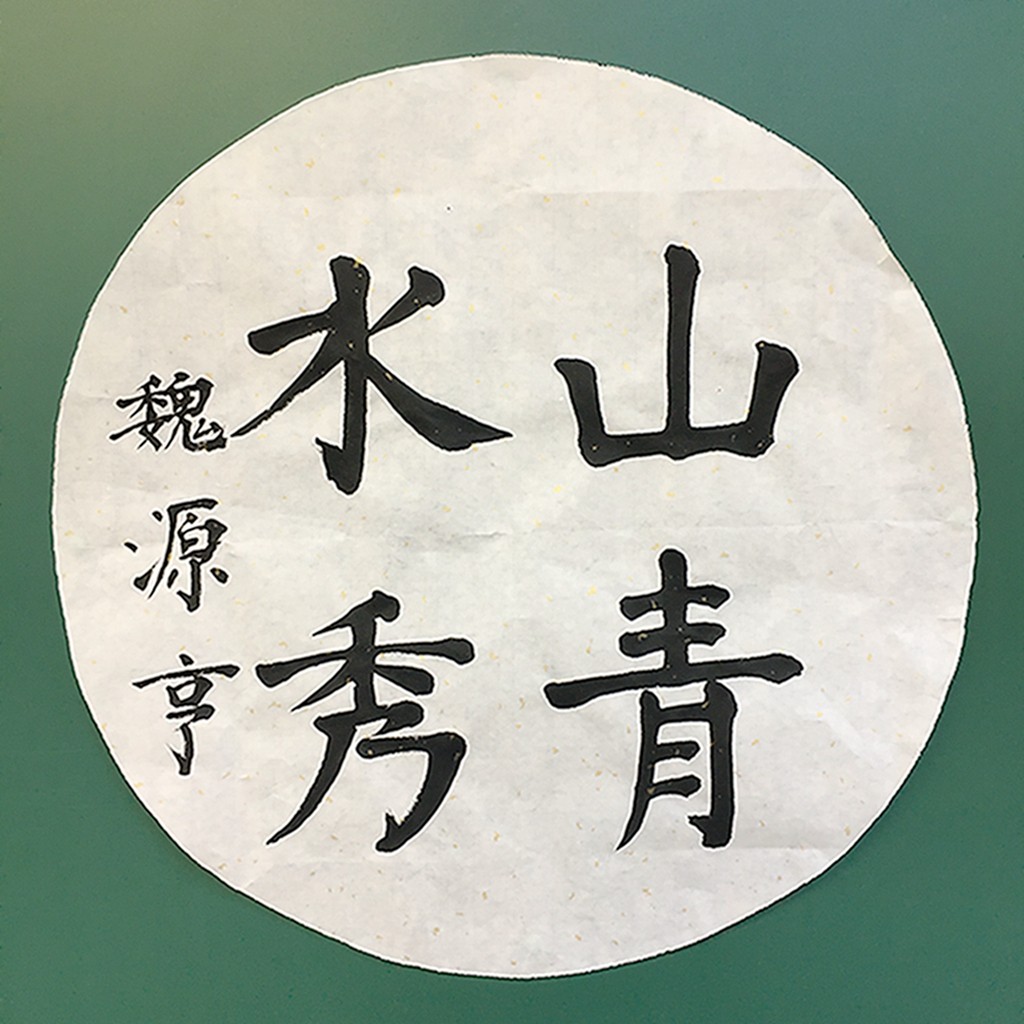 山青
水秀
魏源亨